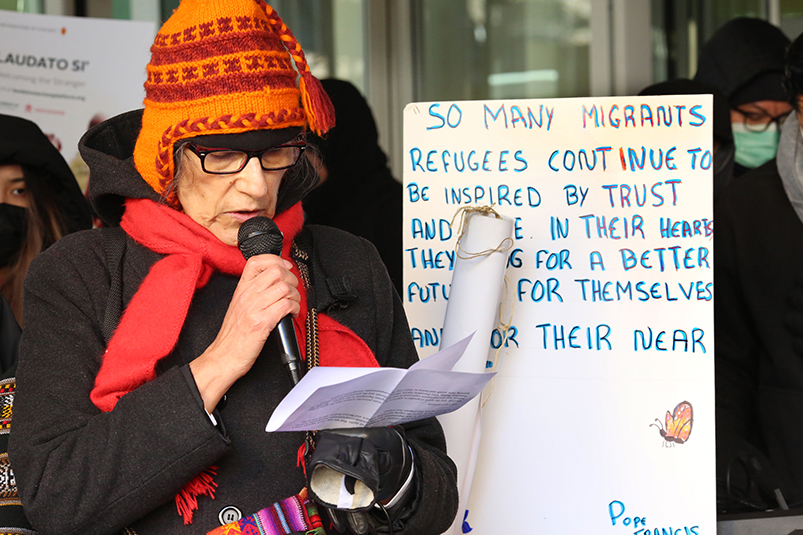 LAUDATO SI'
Welcoming the Stranger
"SO MANY MIGRANTS
REFUGEES CONTINUE TO
BE INSPIRED BY TRUST
AND IN THEIR HEARTS
THEY FOR A BETTER
FUTU FOR THEMSELVES
AND FOR THEIR NEAR
POPE
FRANCIS